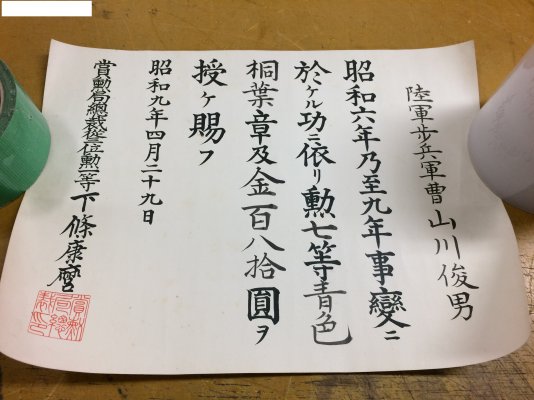 陸軍歩兵軍曹山川俊男
昭和六年乃至九年事變ニ
於ケル功ニ依リ勲七等青色
桐葉章及金百八拾圓ヲ
授ケ賜フ
昭和九年四月二十九日
賞勲局總裁從三位勲一等下條康麿